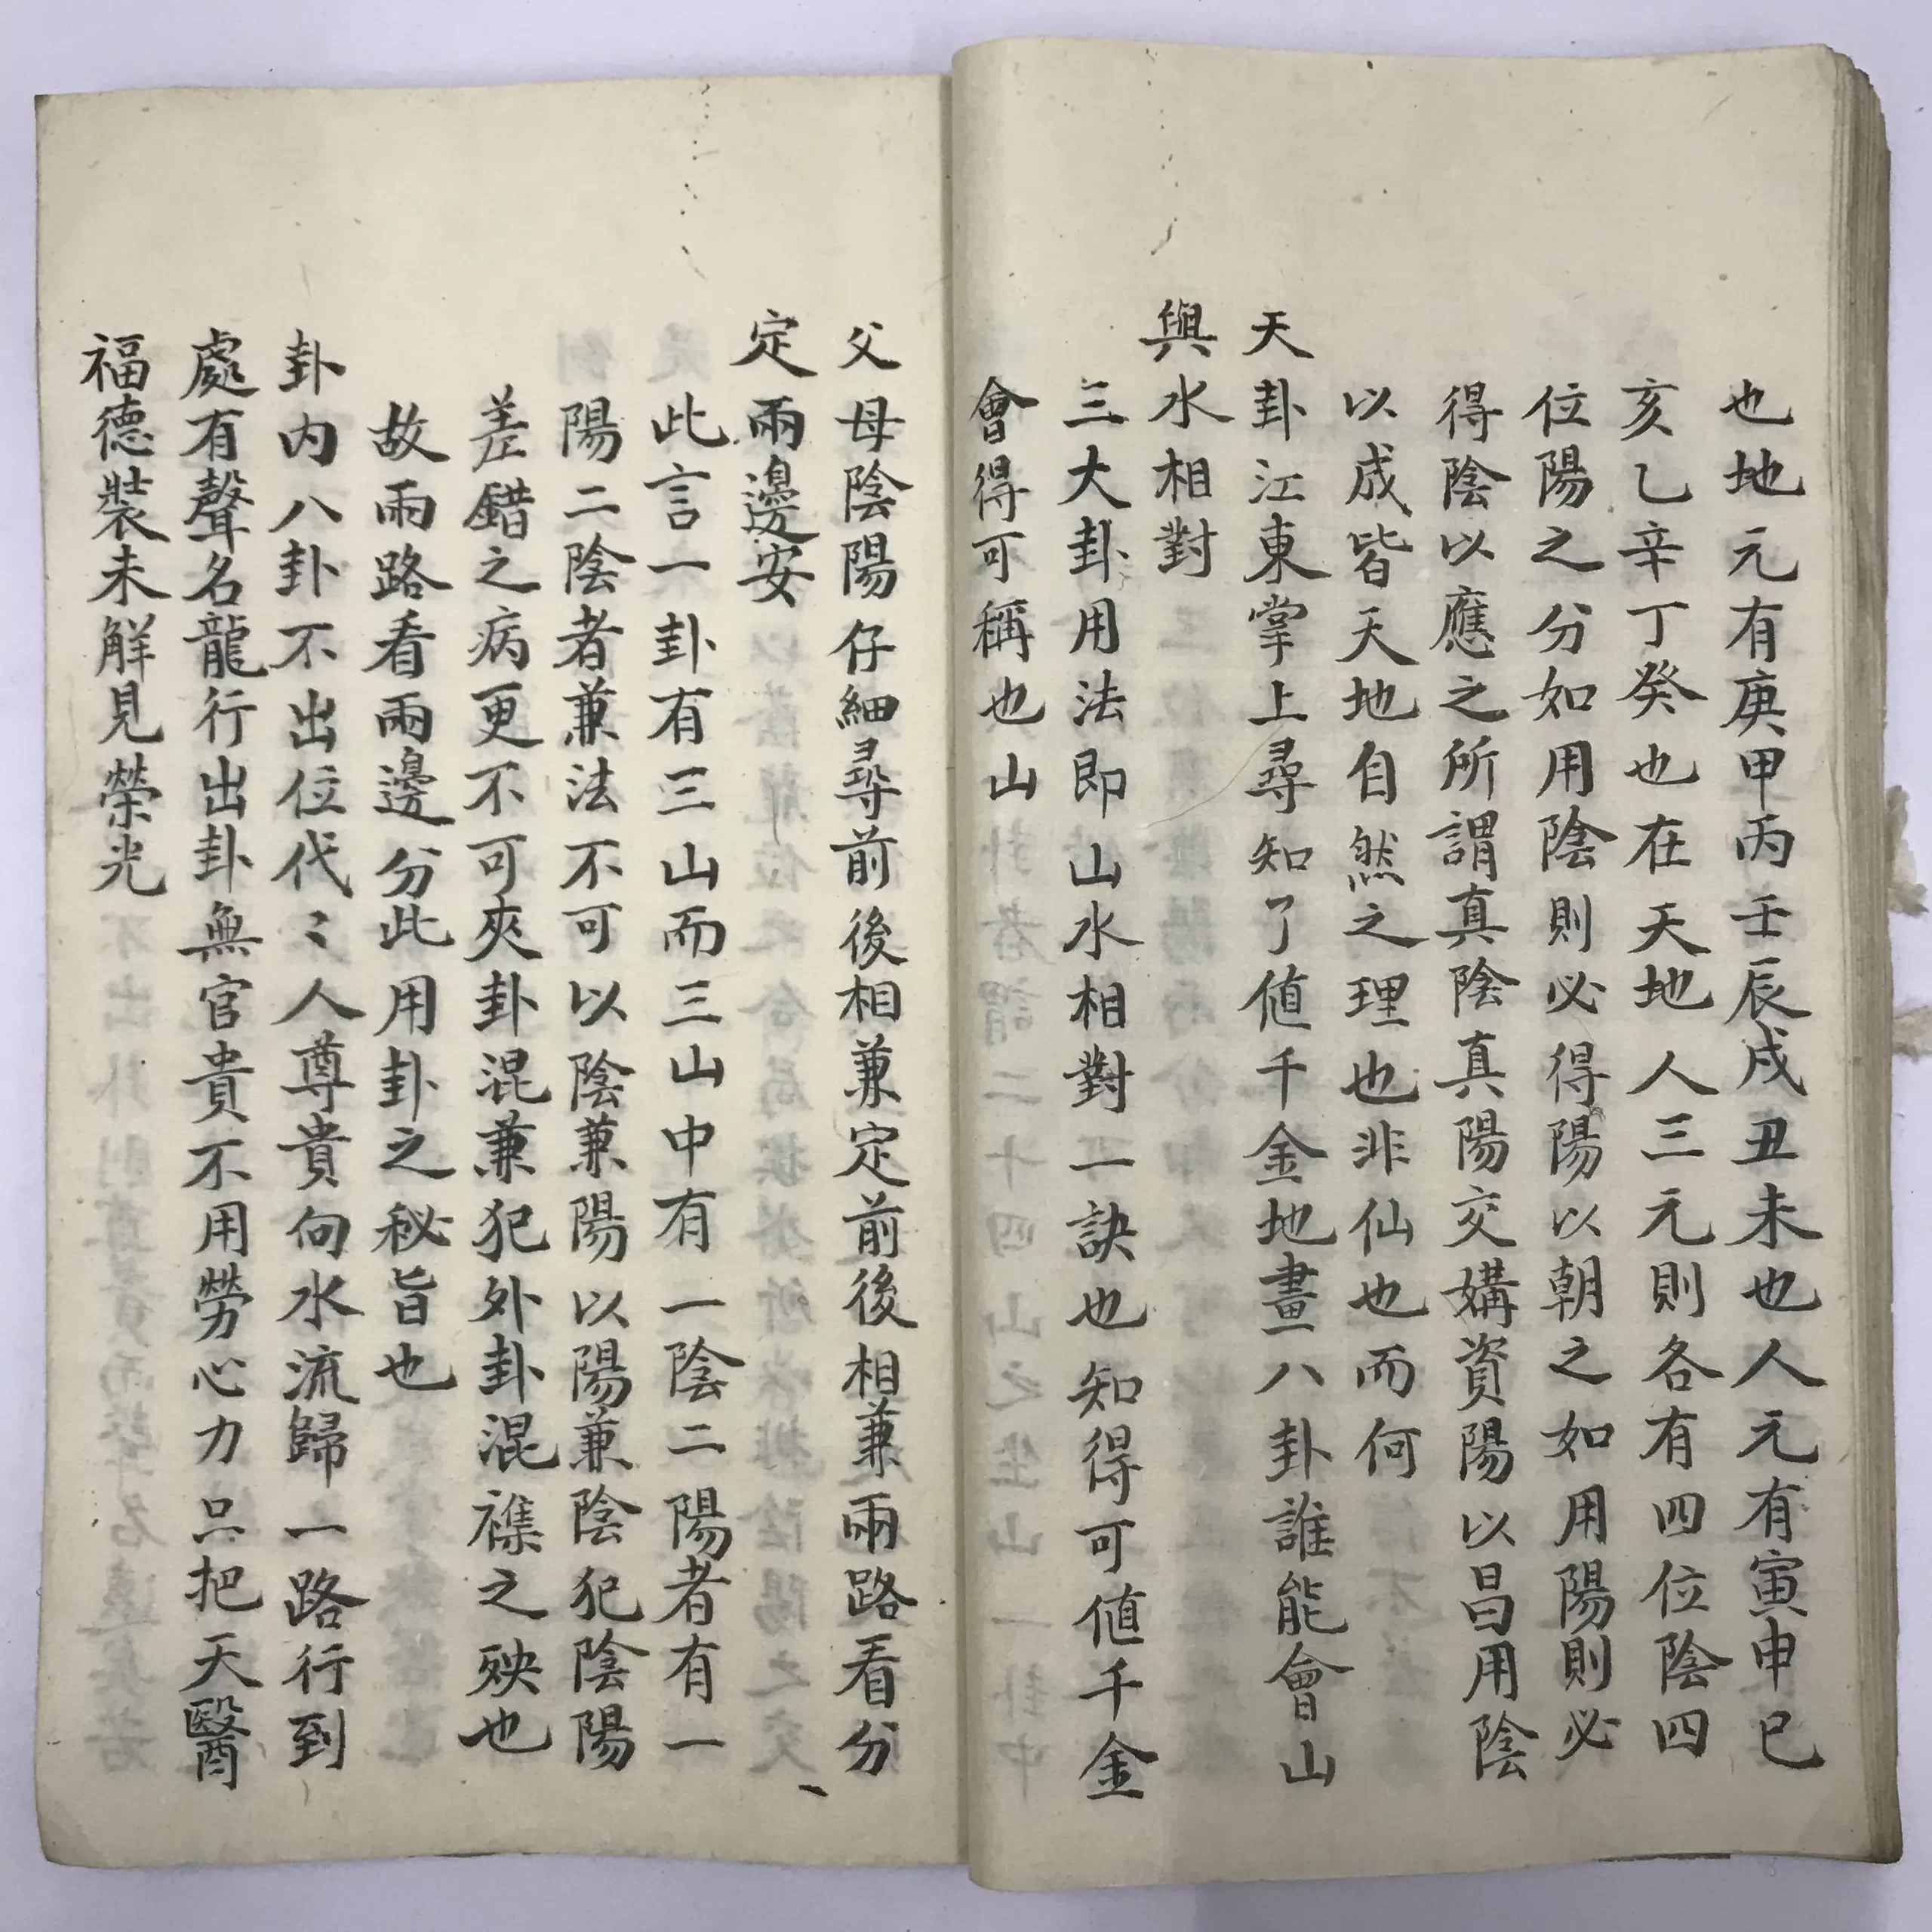 也地元有庚甲丙壬辰戌丑未也人元有寅申巳
亥乙辛丁癸也在天地人三元則各有四位陰四
位陽之分如用陰則必得陽以朝之如用陽則必
得陰以應之所謂真陰真陽交媾資陽以昌用陰
以成皆天地自然之理也非仙也而何
天卦江東掌上尋知了值千金地畫八卦誰能會山
與水相對
三大卦用法即山水相對一訣也知得可值千金
會得可稱也山
父母陰陽仔細尋前後相兼定前後相兼兩路看分
定兩邊安
此言一卦有三山而三山中有一陰二陽者有一
陽二陰者兼法不可以陰兼陽以陽兼陰犯陰陽
差錯之病更不可夾卦混兼犯外卦混襍之殃也
故兩路看兩邊分此用卦之秘旨也
卦内八卦不出位代〻人尊貴向水流歸一路行到
處有聲名龍行出卦無官貴不用勞心力只把天醫
福德裝未觧見榮光